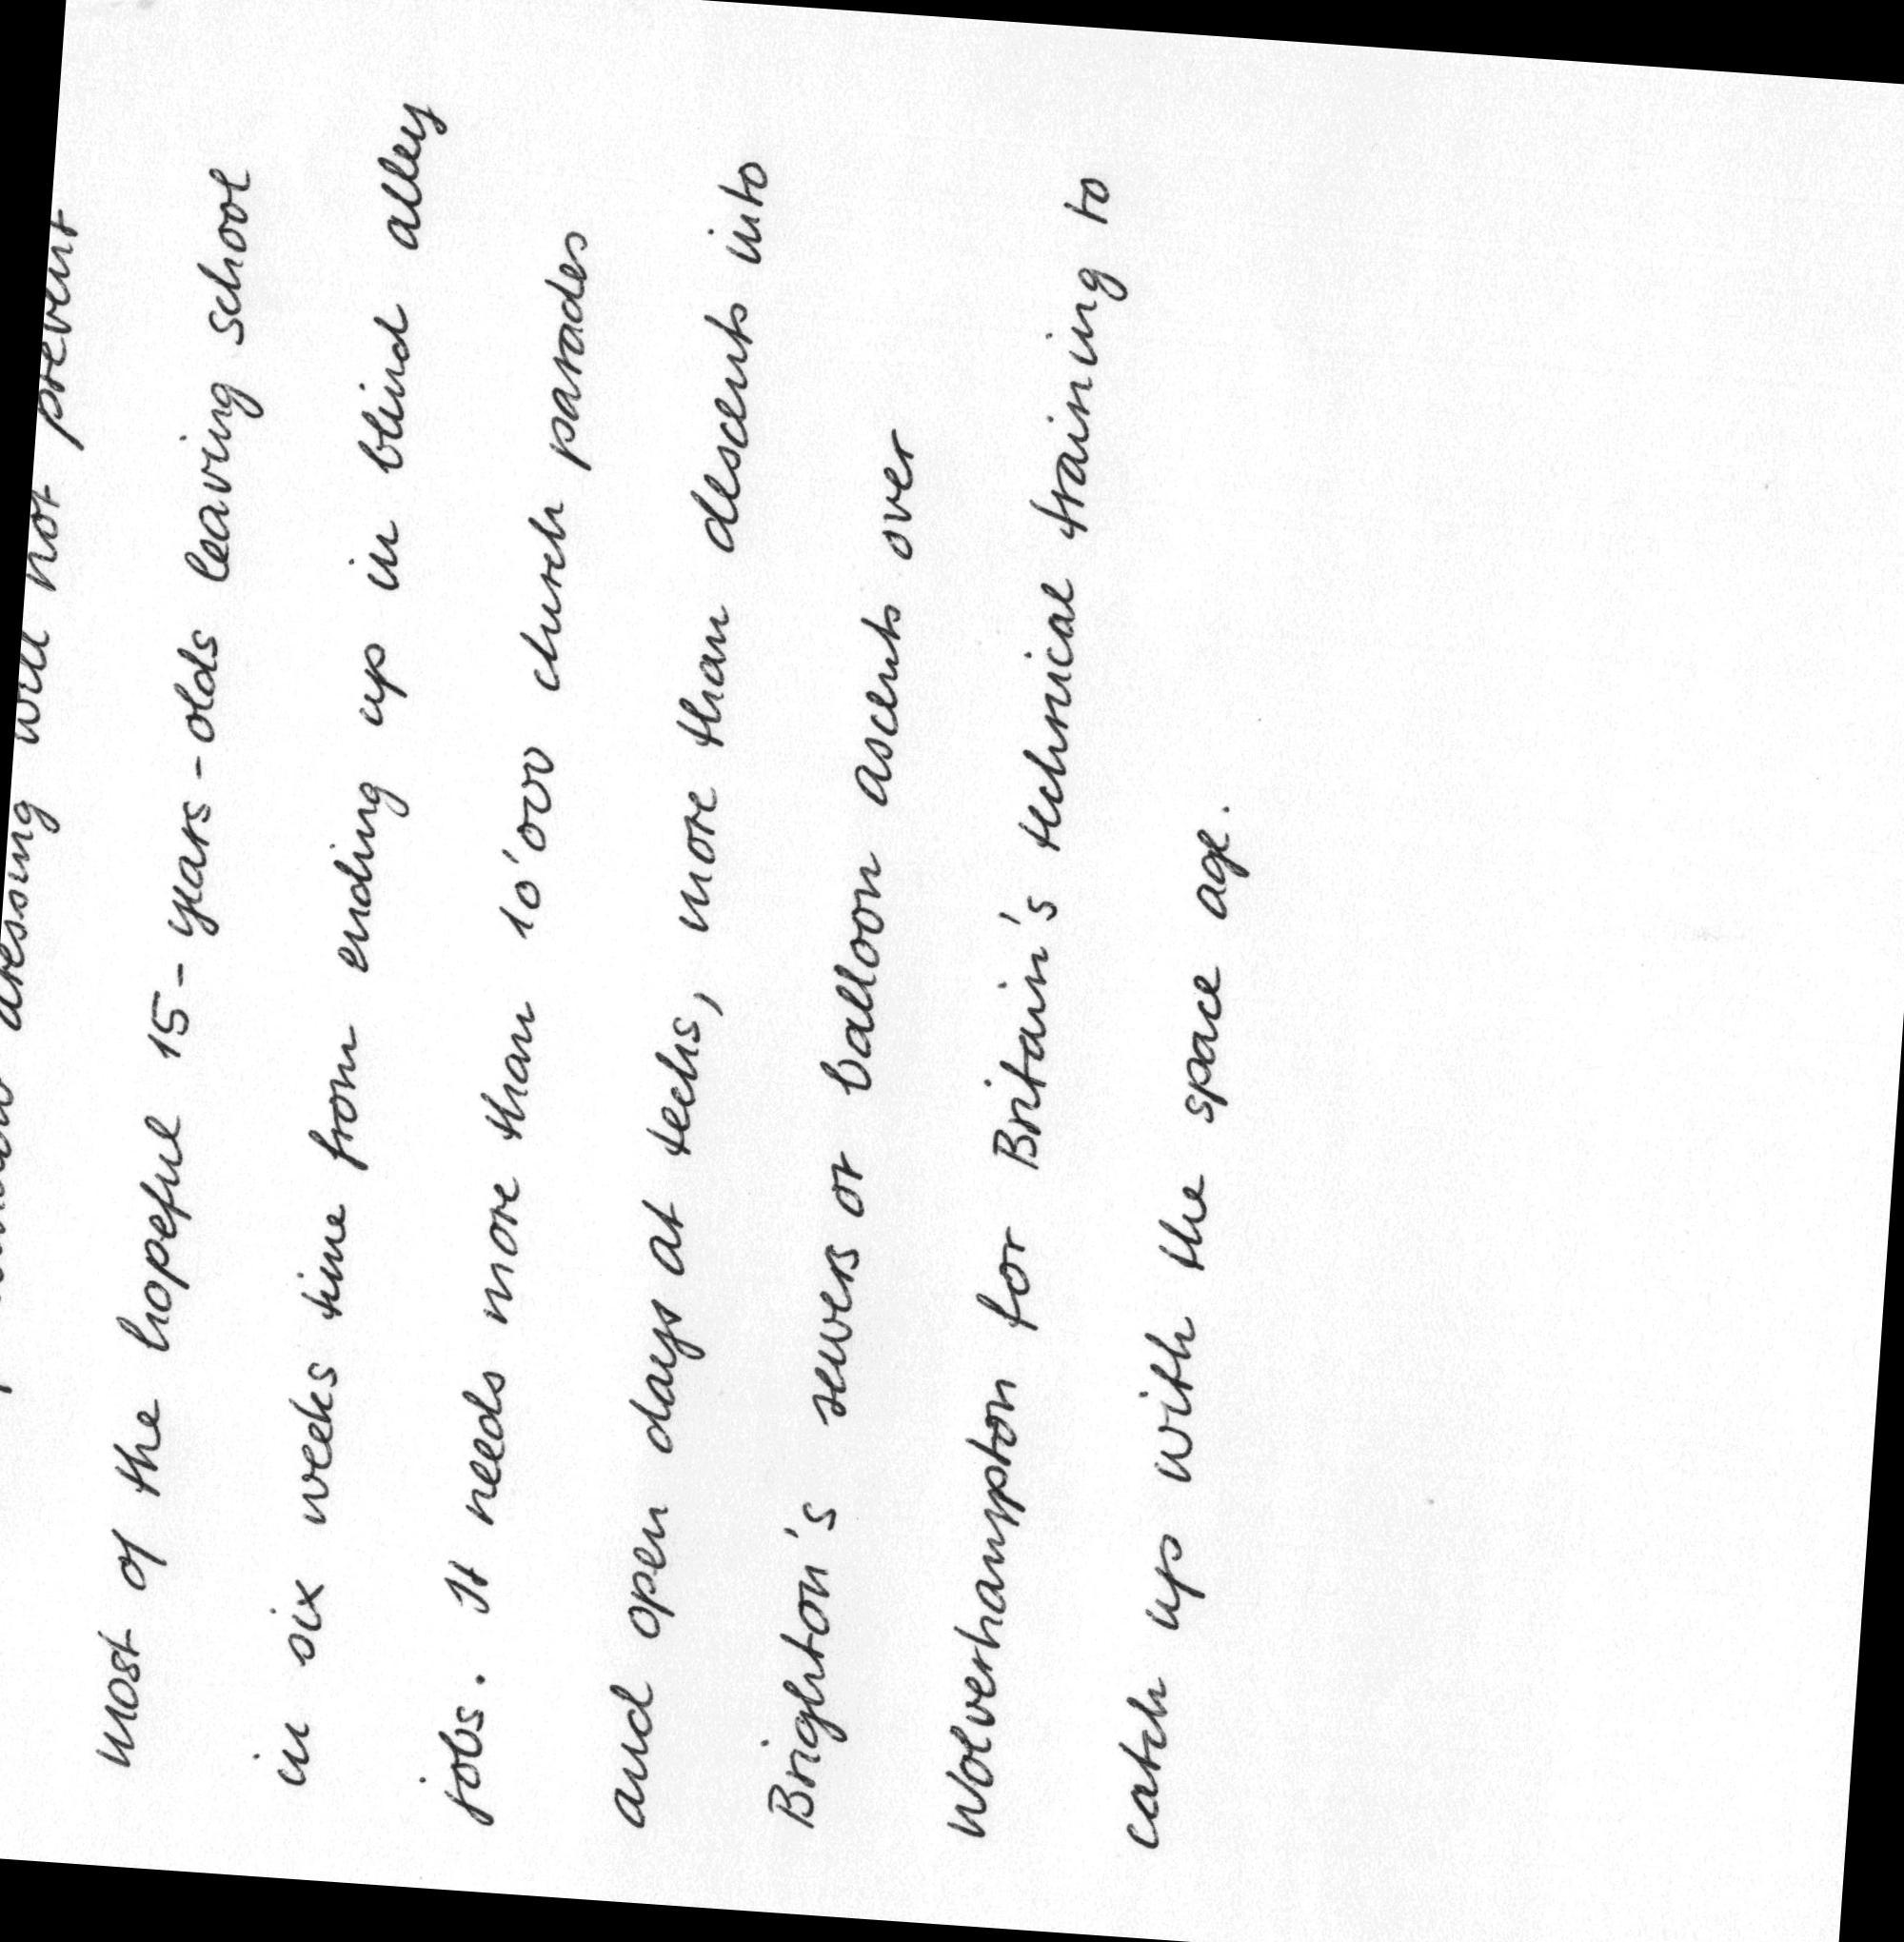 dressing will not prevent
most of the hopeful 15-years-olds leaving school
in six weeks time from ending up in blind alley
jobs. It needs more than 10'000 church parades
and open days at techs, more than descents into
Brighton's sewers or balloon ascents over
Wolverhampton for Britain's technical training to
catch up with the space age.